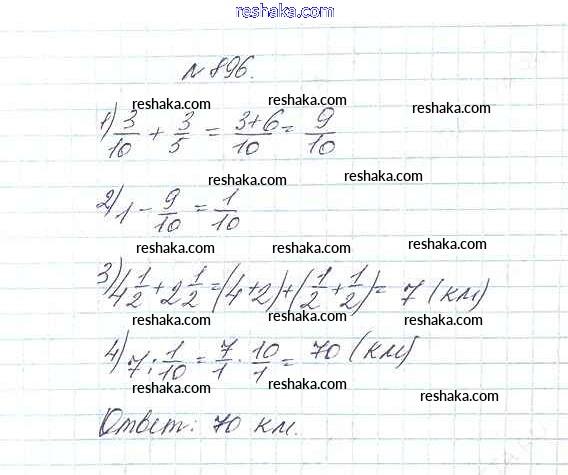 reshaka.com
№ 896.
reshaka.com reshaka.com reshaka.com
1) 3/10 + 3/5 = (3+6)/10 = 9/10
reshaka.com reshaka.com
reshaka.com reshaka.com
2) 1 - 9/10 = 1/10
reshaka.com reshaka.com reshaka.com
3) 4 1/2 + 2 1/2 = (4+2)+(1/2+1/2) = 7 (км)
reshaka.com reshaka.com reshaka.com
4) 7 : 1/10 = 7/1 · 10/1 = 70 (км)
reshaka.com reshaka.com reshaka.com
Ответ: 70 км.
reshaka.com reshaka.com